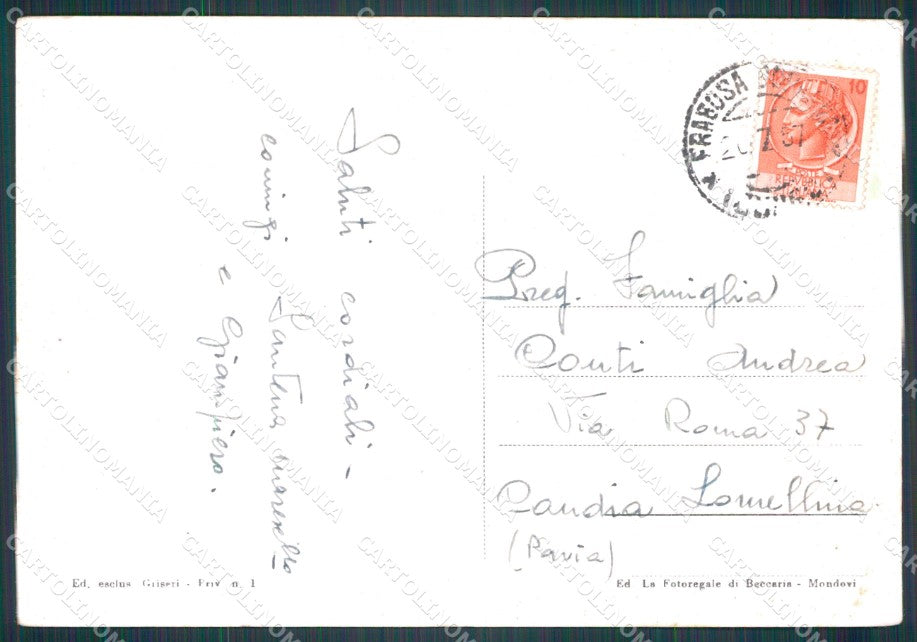 Saluti cordiali -
coniugi Santena
e Giampiero.
FRABOSA
20.7.57
10
Preg. Famiglia
Conti Andrea
Via Roma 37
Candia Lomellina
(Pavia)
Ed. esclus. Griseri - Priv. n. 1
Ed La Fotoregale di Beccaria - Mondovi
CARTOLINOMANIA